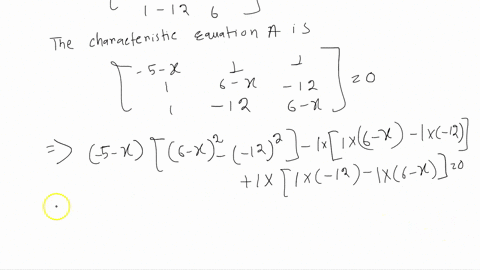 1 -12 6
The characteristic equation A is
-5-x 1 1
1 6-x -12 =0
1 -12 6-x
=> (-5-x) [(6-x)² - (-12)²] - 1x [1x(6-x) - 1x(-12)]
+1x [1x(-12) - 1x(6-x)] =0